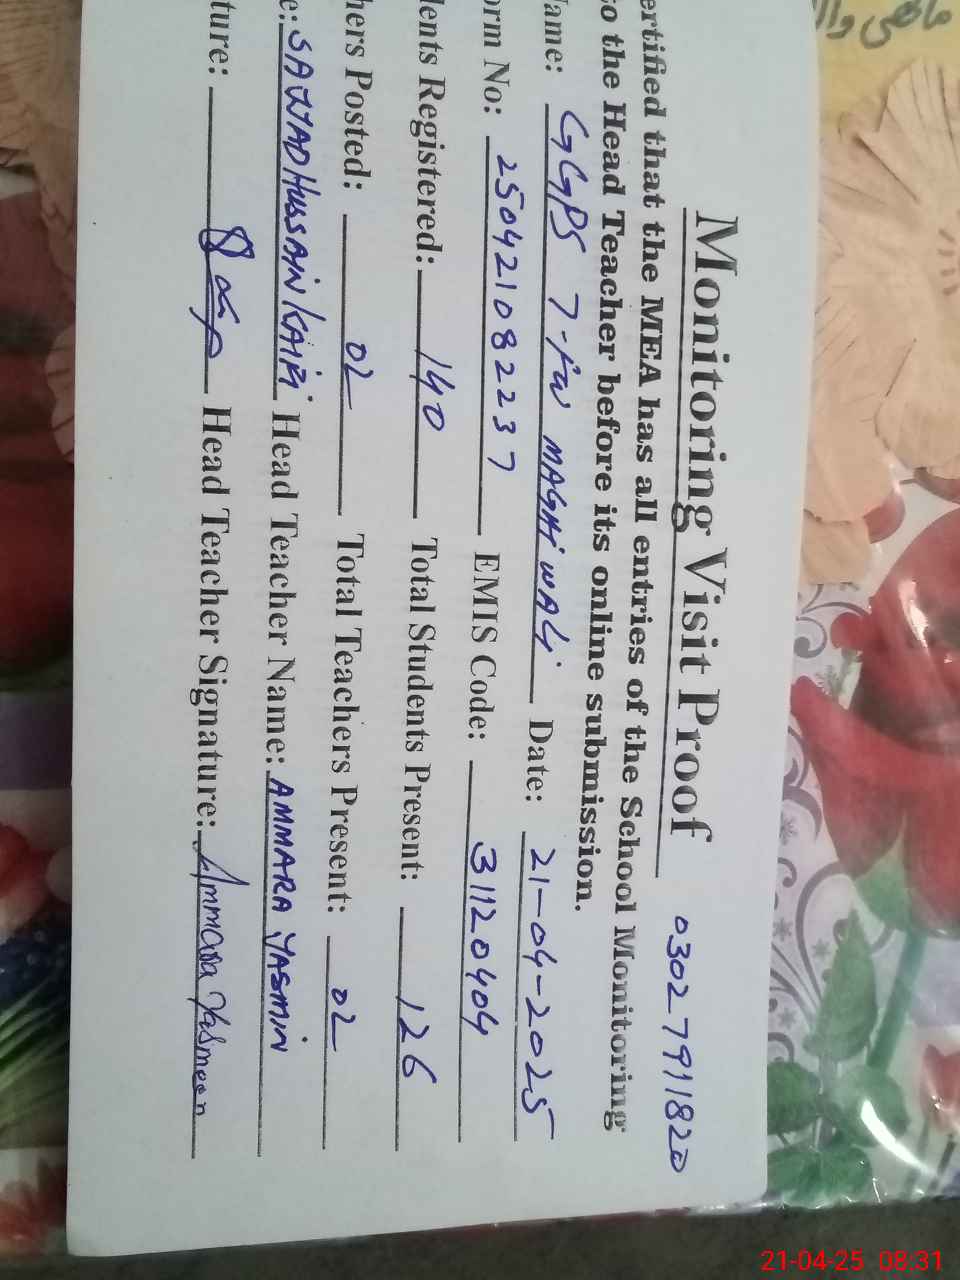 Monitoring Visit Proof 03027911820
ertified that the MEA has all entries of the School Monitoring
o the Head Teacher before its online submission.
ame: GGPS 7-FW MAGHI WALI Date: 21-04-2025
orm No: 2504210822237 EMIS Code: 31120404
dents Registered: 140 Total Students Present: 126
hers Posted: 02 Total Teachers Present: 02
e: SAJJAD HUSSAIN KAIFI Head Teacher Name: AMMARA YASMIN
ture: Head Teacher Signature: Ammara Yasmeen
ماھی وال
21-04-25 08:31